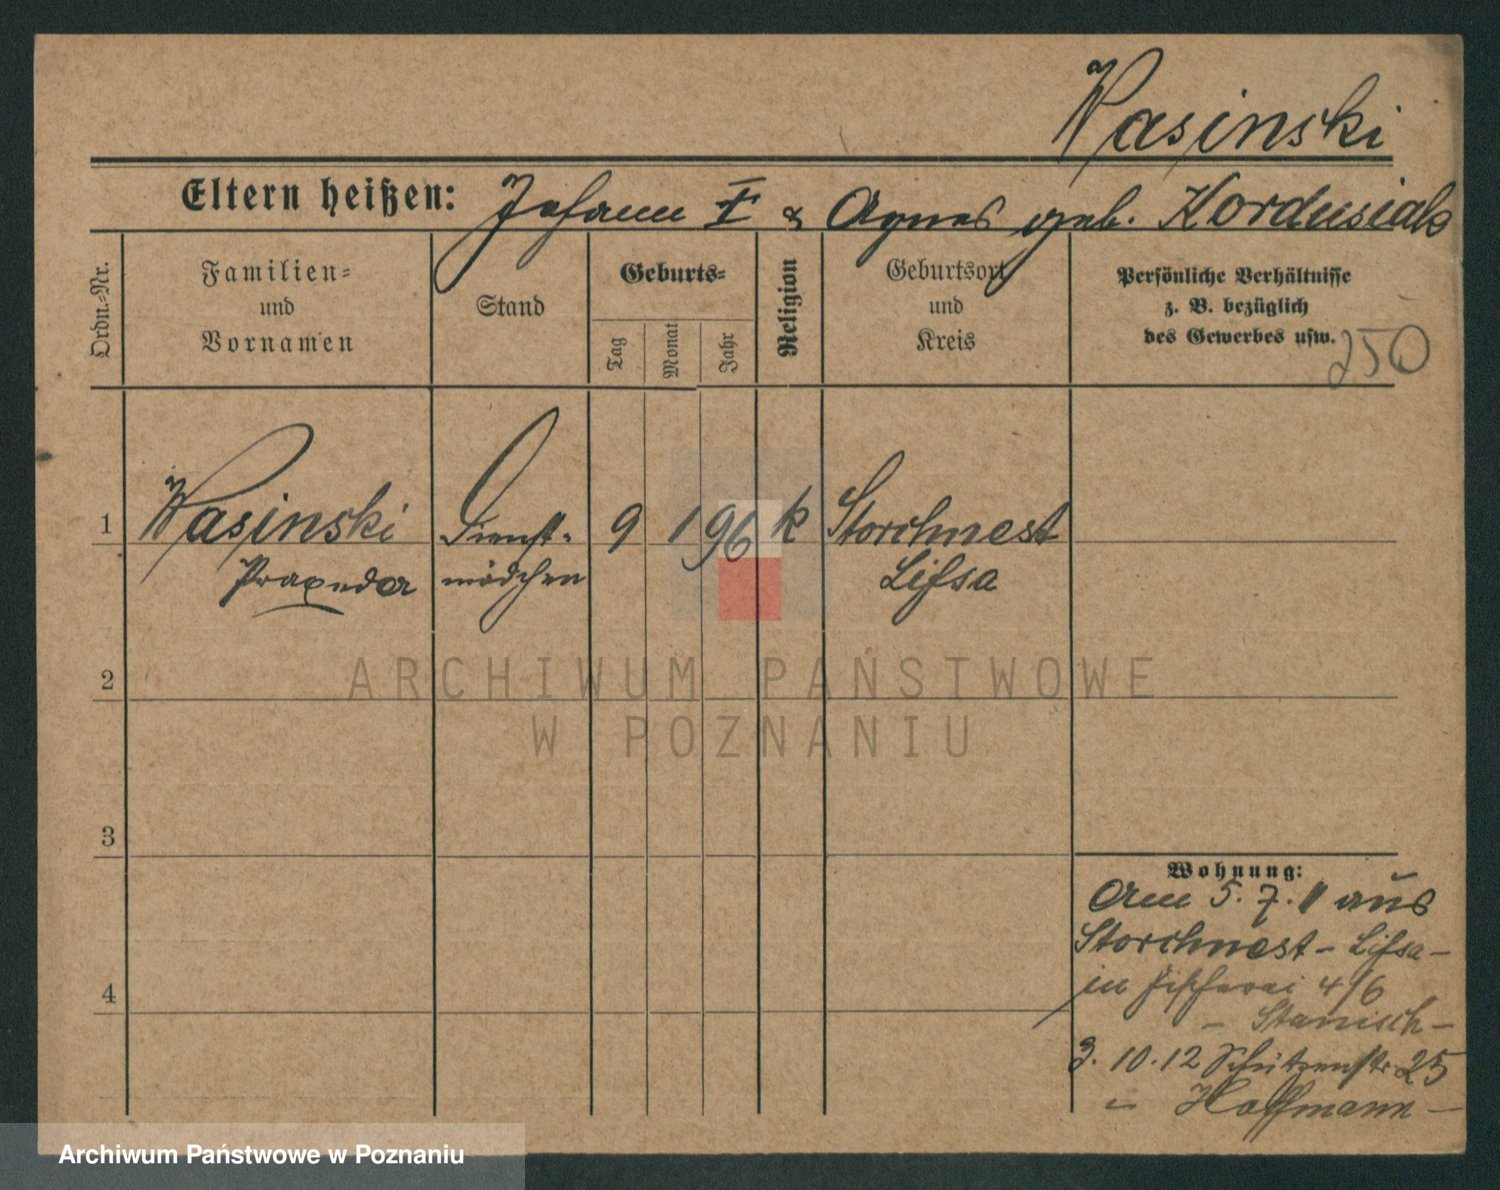 Wasinski
Eltern heißen: Johann I & Agnes geb. Kordusiak
Ordn.=Nr.
Familien=
und
Vornamen
Stand
Geburts=
Tag
Monat
Jahr
Religion
Geburtsort
und
Kreis
Persönliche Verhältnisse
z. B. bezüglich
des Gewerbes usw.
250
1 Wasinski Dienst- 9 1 96 k Storchnest
Praxeda mädchen Lissa
2
ARCHIWUM PAŃSTWOWE
W POZNANIU
3
Wohnung:
Am 5. 7. 11 aus
Storchnest - Lissa -
4
in Fischerei 4/6
- Stanisch -
3. 10. 12 Schützenstr 25
- Hoffmann -
Archiwum Państwowe w Poznaniu